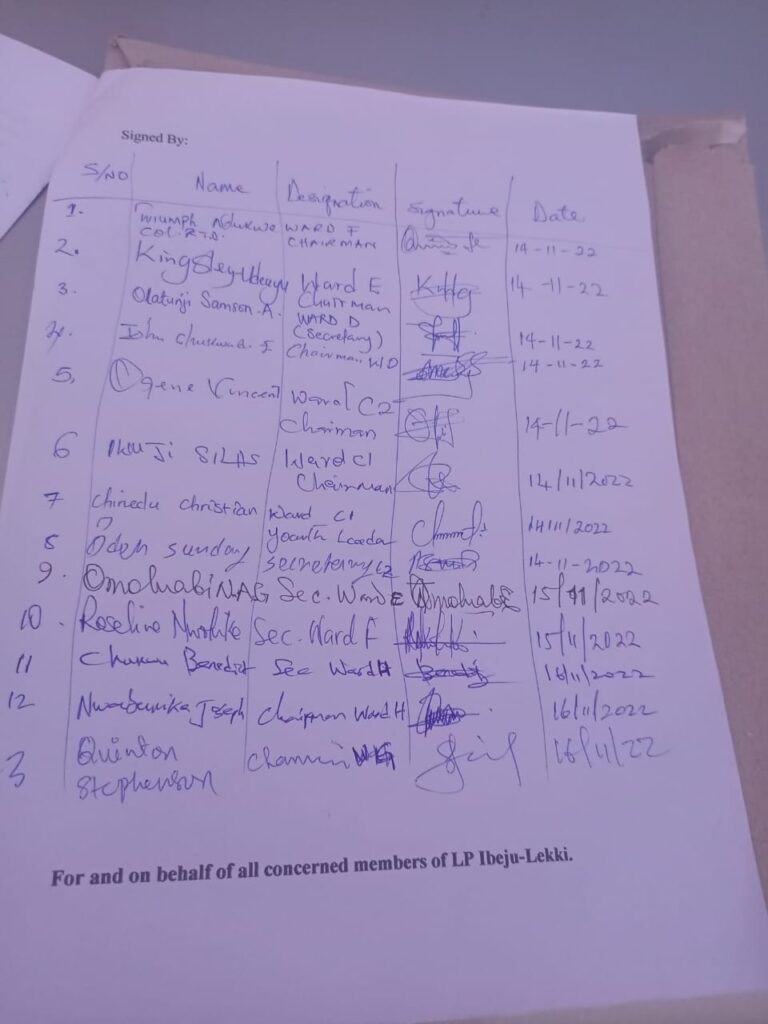 Signed By:
S/NO Name Designation Signature Date
1. Triumph WARD F 14-11-22
COL. RTD. CHAIRMAN
2. Kingsley Ward E 14-11-22
Chairman
3. Olatunji Samson. A. WARD D 14-11-22
(Secretary)
4. John Chairman WD 14-11-22
5. Ogene Vincent Ward C2 14-11-22
Chairman
6 SILAS Ward C1 14/11/2022
Chairman
7 Chinedu Christian Ward C1 14/11/2022
Youth Leader
8 Odeh Sunday Secretary 14-11-2022
9. Omoluabi NAG Sec. Ward E Omoluabi 15/11/2022
10. Roseline Sec. Ward F 15/11/2022
11 Benedict Sec Ward H 16/11/2022
12 Joseph Chairman Ward H 16/11/2022
3 Quinton 16/11/22
Stephenson
For and on behalf of all concerned members of LP Ibeju-Lekki.